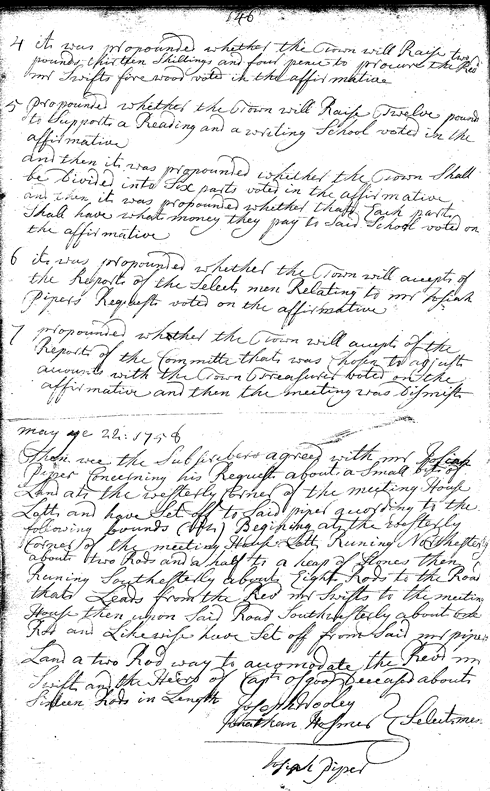 146
4 its was propounded whether the Town will Raise two
pounds thirteen Shillings and four pence to procure the Rev
mr Swifts fire wood voted in the affirmative
5 propounded whether the Town will Raise Twelve pounds
to Supports a Reading and a writing School voted in the
affirmative
and then its was propounded whether the Town Shall
be divided into Six parts voted in the affirmative
and then its was propounded whether thats Each part
Shall have whats money they pay to Said School voted on
the affirmative
6 its was propounded whether the Town will accepts of
the Reports of the Selects men Relating to mr Josiah
Pipers Requests voted on the affirmative
7 propounded whether the Town will accepts of the
Reports of the Committe thats was Chosen to adjusts
accounts with the Town Treasurer voted on the
affirmative and then the meeting was Dismists
may ye 22: 1758
Then wee the Subscribers agreed with mr
Piper Concerning his Requests about a Small bits of
Land ats the westerly Corner of the meeting House
Lotts and have Set off to Said piper according to the
following bounds (viz) Begining ats the westerly
Corner of the meeting House Lott Runing Northesterly
abouts two Rods and a half to a heap of Stones then
Runing Southesterly abouts Eight Rods to the Road
thats Leads from the Rev mr Swifts to the meeting
House then upon Said Road Southwesterly about one
Rod and Likewise have Set off from Said mr pipers
Land a two Rod way to accomodate the Revd mr
Swifts and the Heirs of Capt Deceased abouts
Sixteen Rods in Length
Joseph
Jonathan Hosmer Selectsmen
Joseph Piper